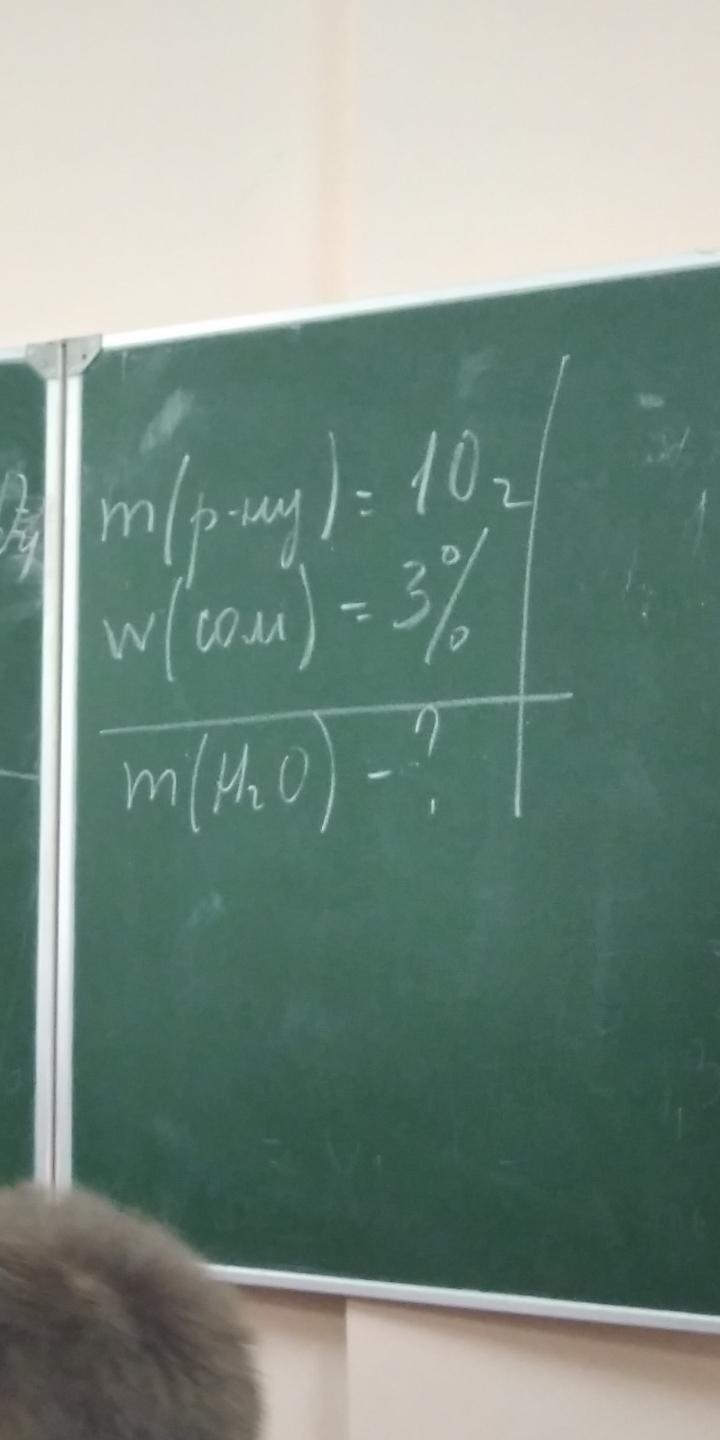 m(р-ну) = 10г
w(солі) = 3%
m(H₂O) - ?